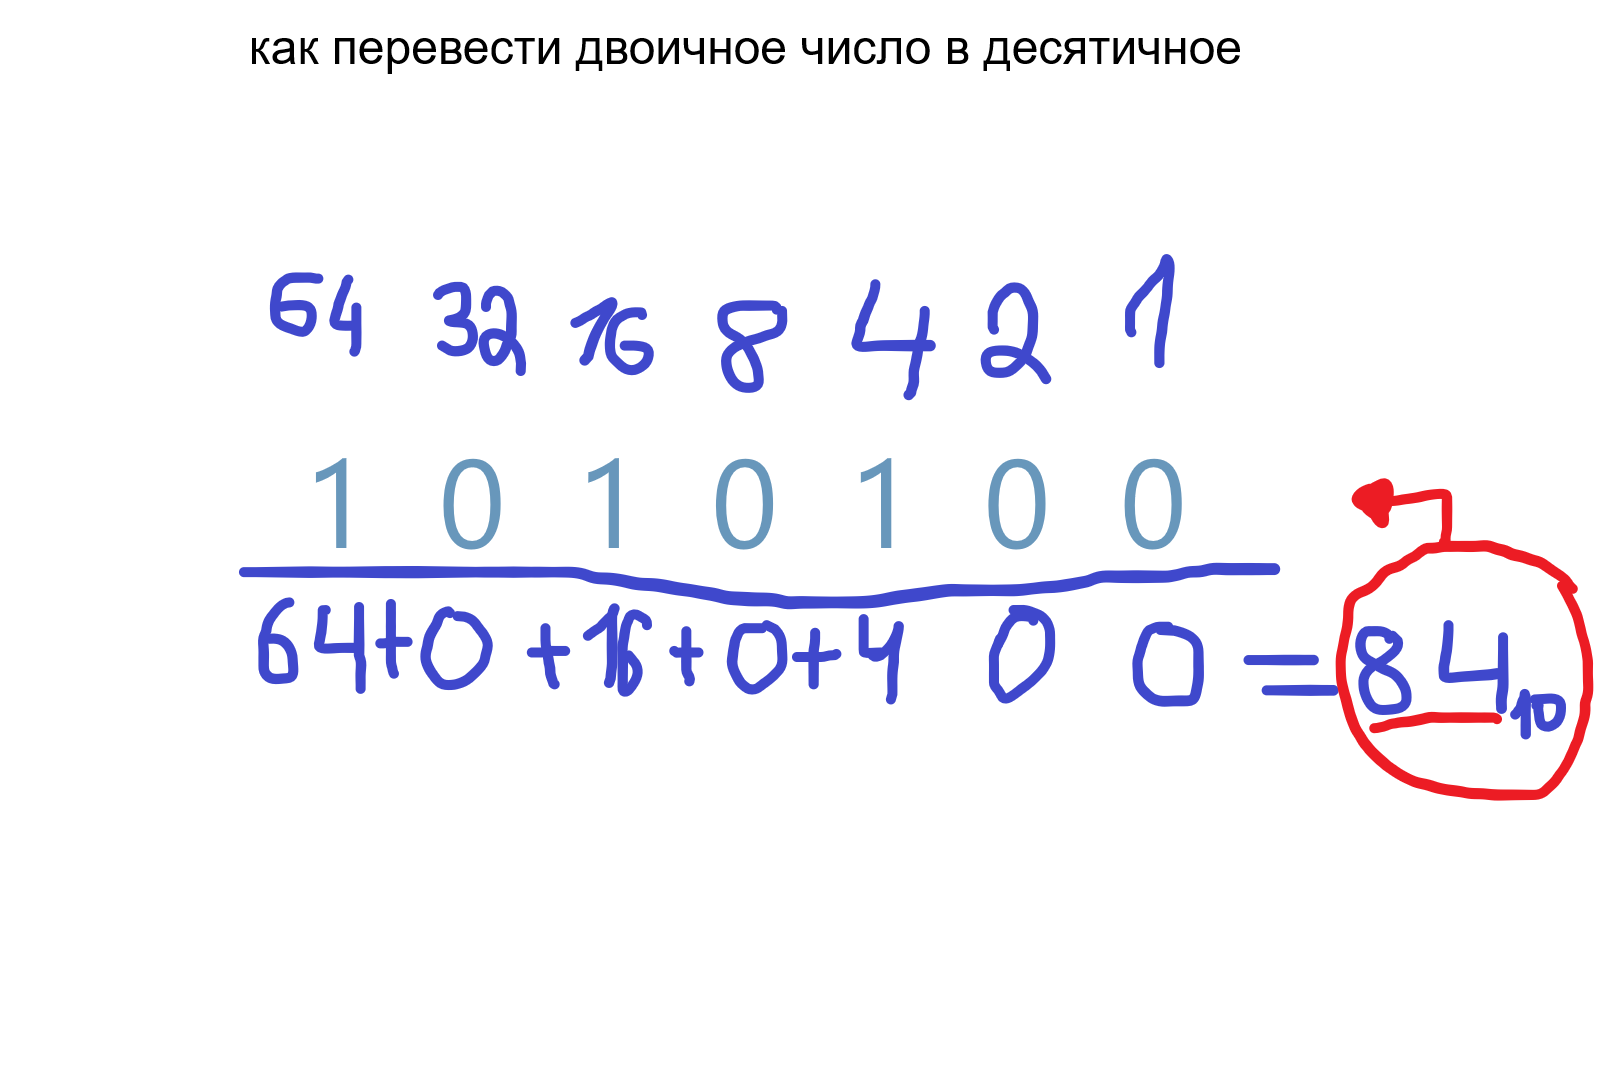 как перевести двоичное число в десятичное
64 32 16 8 4 2 1
1 0 1 0 1 0 0
64+0 +16+0+4 0 0 =84₁₀